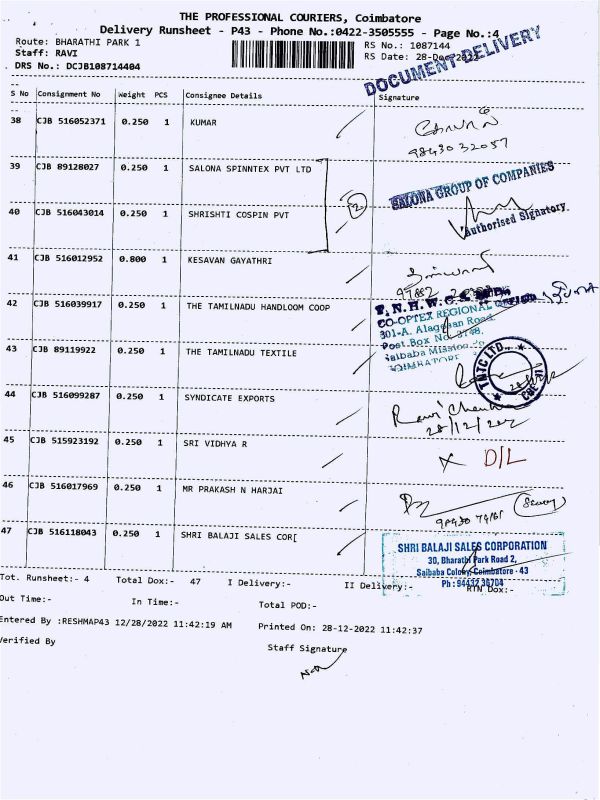 THE PROFESSIONAL COURIERS, Coimbatore
Delivery Runsheet - P43 - Phone No.:0422-3505555 - Page No.:4
Route: BHARATHI PARK 1
RS No.: 1087144
Staff: RAVI
RS Date: 28-Dec-2022
DRS No.: DCJB108714404
DOCUMENT DELIVERY
S No Consignment No Weight PCS Consignee Details Signature
38 CJB 516052371 0.250 1 KUMAR
98430 32057
39 CJB 89128027 0.250 1 SALONA SPINNTEX PVT LTD
SALONA GROUP OF COMPANIES
2
40 CJB 516043014 0.250 1 SHRISHTI COSPIN PVT
Authorised Signatory
41 CJB 516012952 0.800 1 KESAVAN GAYATHRI
42 CJB 516039917 0.250 1 THE TAMILNADU HANDLOOM COOP
CO-OPTEX REGIONAL
Post Box No.
Saibaba Mission
COIMBATORE
43 CJB 89119922 0.250 1 THE TAMILNADU TEXTILE
TNTC LTD.
44 CJB 516099287 0.250 1 SYNDICATE EXPORTS
28/12/202
45 CJB 515923192 0.250 1 SRI VIDHYA R
X D/L
46 CJB 516017969 0.250 1 MR PRAKASH N HARJAI
47 CJB 516118043 0.250 1 SHRI BALAJI SALES COR[
SHRI BALAJI SALES CORPORATION
30, Bharathi Park Road 2,
Saibaba Colony, Coimbatore - 43
Ph : 94432 36704
Tot. Runsheet:- 4 Total Dox:- 47 I Delivery:- II Delivery:- RTN Dox:-
Out Time:- In Time:- Total POD:-
Entered By :RESHMAP43 12/28/2022 11:42:19 AM Printed On: 28-12-2022 11:42:37
Verified By
Staff Signature